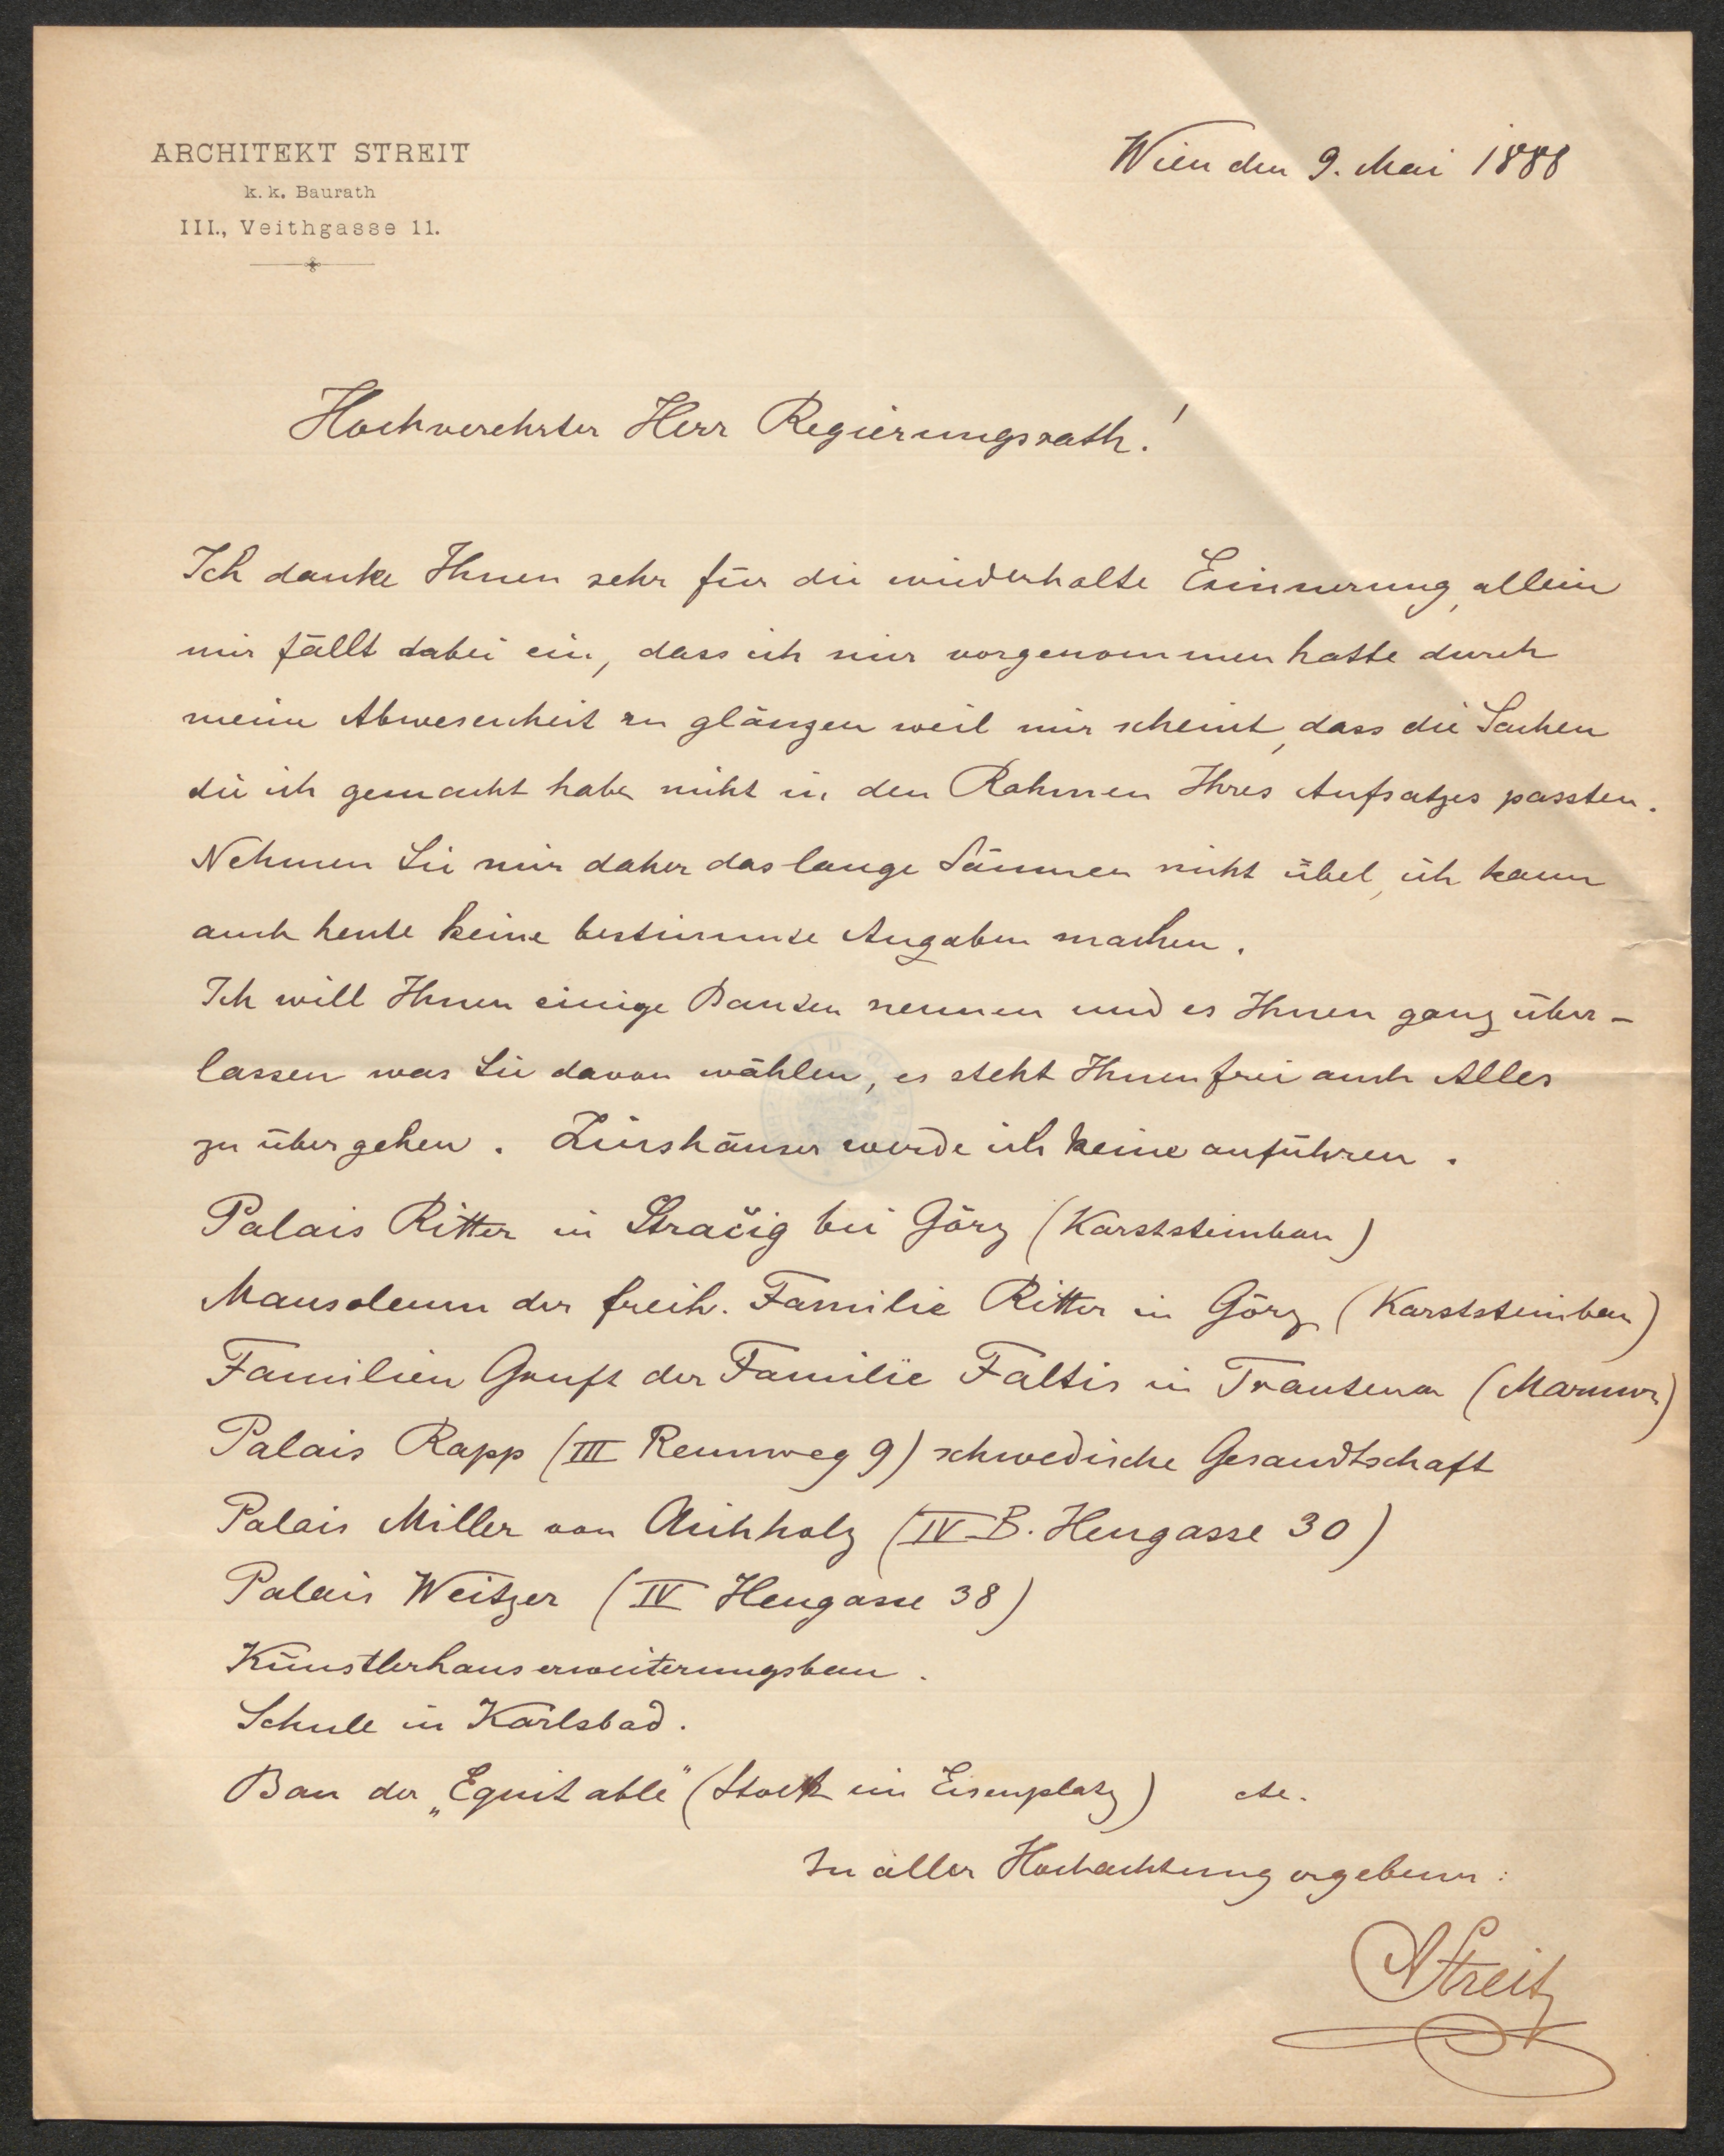 ARCHITEKT STREIT
k. k. Baurath
III., Veithgasse 11.
Wien den 9. Mai 1888
Hochverehrter Herr Regierungsrath!
Ich danke Ihnen sehr für die wiederholte Erinnerung, allein
mir fällt dabei ein, dass ich mir vorgenommen hatte durch
meine Abwesenheit zu glänzen weil mir scheint, dass die Sachen
die ich gemacht habe nicht in den Rahmen Ihres Aufsatzes passten.
Nehmen Sie mir daher das lange Säumen nicht übel, ich kann
auch heute keine bestimmte Angaben machen.
Ich will Ihnen einige Bauten nennen und es Ihnen ganz über-
lassen was Sie davon wählen, es steht Ihnen frei auch Alles
zu übergehen. Zinshäuser werde ich keine anführen.
Palais Ritter in Stračig bei Görz (Karststeinbau)
Mausoleum der freih. Familie Ritter in Görz (Karststeinbau)
Familien Gruft der Familie Faltis in Trautenau (Marmor)
Palais Rapp (III Rennweg 9) schwedische Gesandtschaft
Palais Miller von Aichholz (IV B. Heugasse 30)
Palais Weitzer (IV Heugasse 38)
Künstlerhauserweiterungsbau.
Schule in Karlsbad.
Bau der „Equitable" (Stock im Eisenplatz) etc.
In aller Hochachtung ergebener:
AStreit